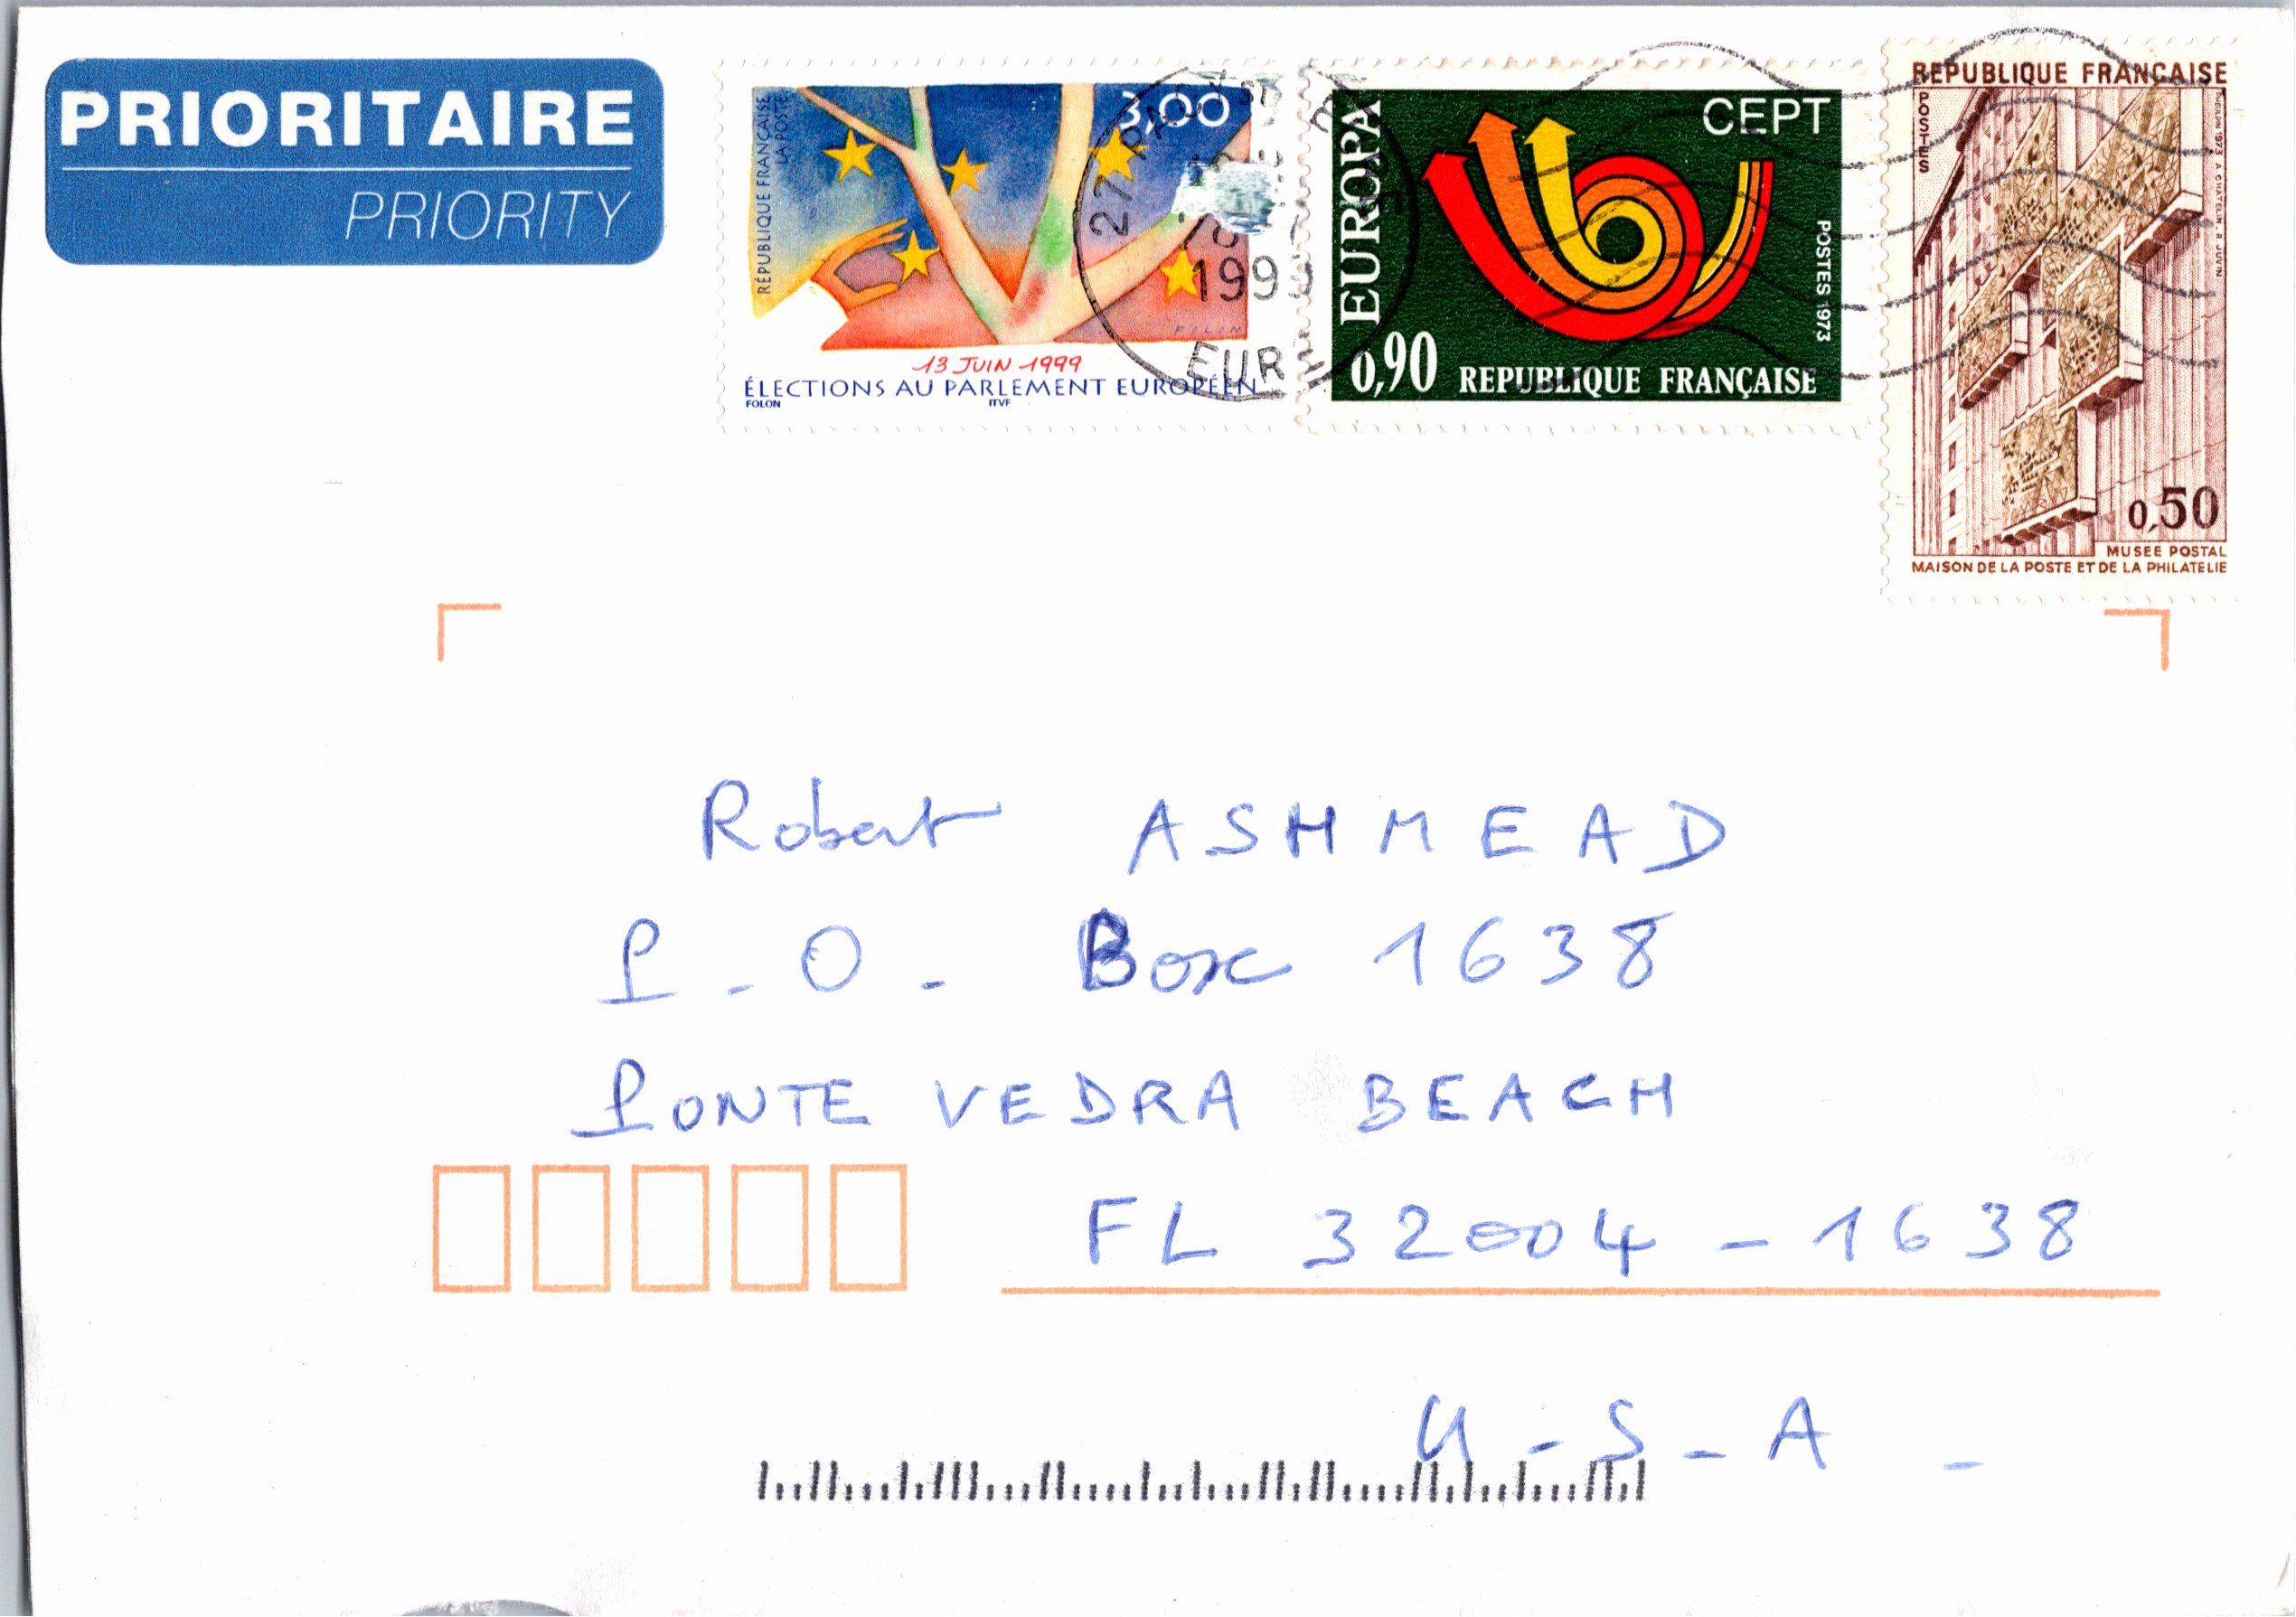 PRIORITAIRE
PRIORITY
RÉPUBLIQUE FRANÇAISE
LA POSTE
3,00
FOLON
13 JUIN 1999
ÉLECTIONS AU PARLEMENT EUROPÉEN
FOLON
ITVF
27 PACY
1999
EURE
EUROPA
CEPT
POSTES 1973
0,90 REPUBLIQUE FRANÇAISE
REPUBLIQUE FRANÇAISE
POSTES
0,50
MUSEE POSTAL
MAISON DE LA POSTE ET DE LA PHILATELIE
Robert ASHMEAD
P.O. Box 1638
PONTE VEDRA BEACH
FL 32004-1638
U.S.A.